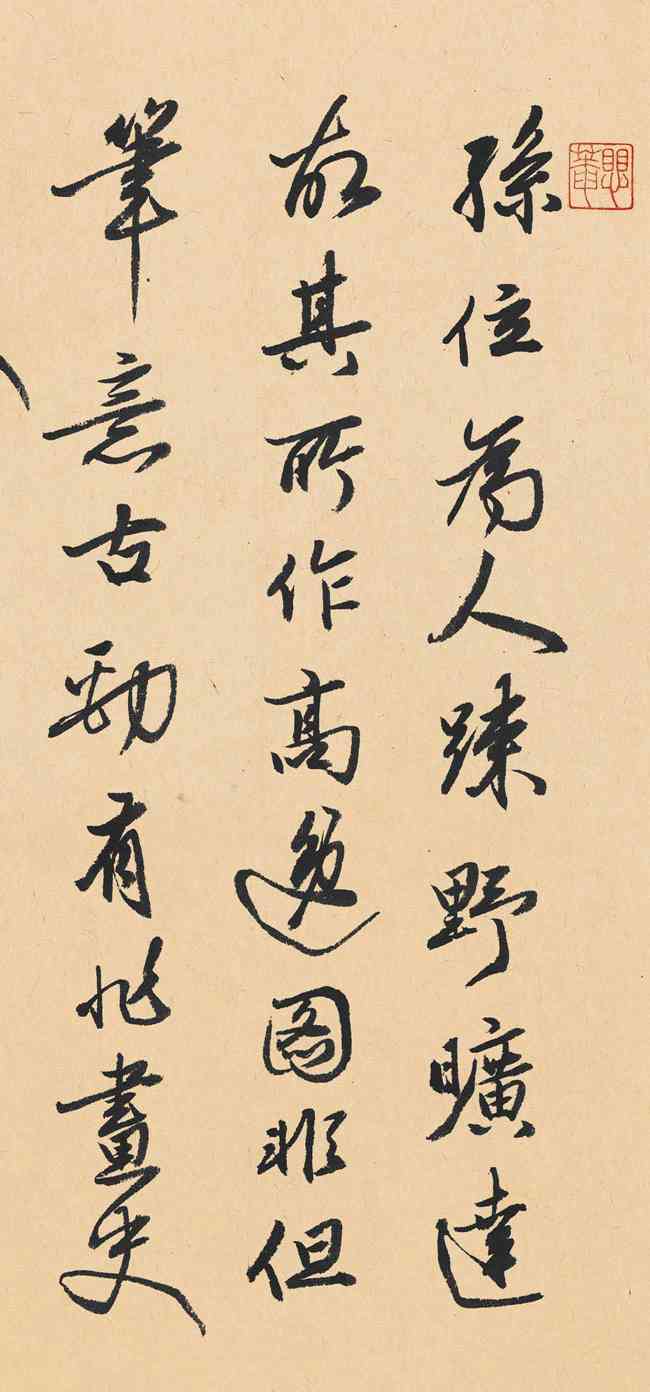 孫位為人踈野曠達
故其所作高逸圖非但
筆意古勁有非畫史